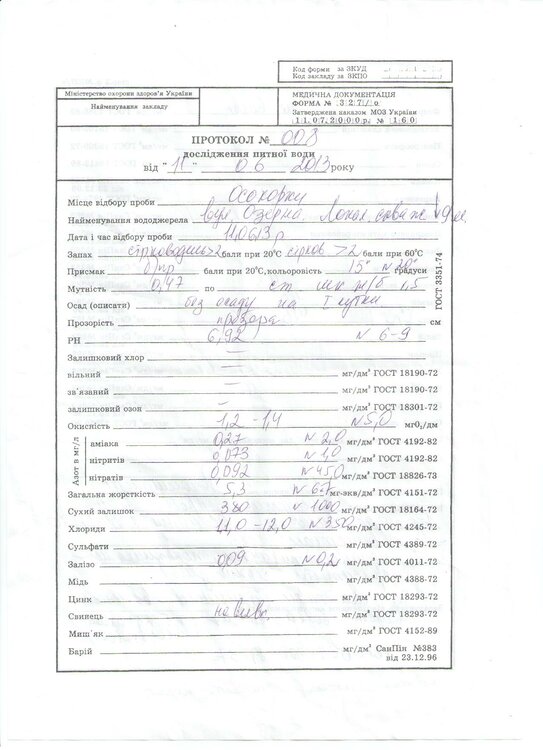 Код форми за ЗКУД
Код закладу за ЗКПО
Міністерство охорони здоров'я України
Найменування закладу
МЕДИЧНА ДОКУМЕНТАЦІЯ
ФОРМА № 327/о
Затверджена наказом МОЗ України
11.07.2000р. № 160
ПРОТОКОЛ № 008
дослідження питної води
від "11" 06 2013 року
Місце відбору проби Осокорки
Найменування вододжерела вул. Озерна. Локал. 9 м.
Дата і час відбору проби 11.06.13 р
Запах сірководню >2 бали при 20°С сірков >2 бали при 60°С
Присмак б/пр бали при 20°С, кольоровість 15° N 20° градуси
Мутність 0,47 по ст. мк т/б 1,5
ГОСТ 3351-74
Осад (описати) без осаду на I сутки
Прозорість прозора см
РН 6,92 N 6-9
Залишковий хлор —
вільний — мг/дм³ ГОСТ 18190-72
зв'язаний — мг/дм³ ГОСТ 18190-72
залишковий озон — мг/дм³ ГОСТ 18301-72
Окисність 1,2 - 1,4 N 5,0 мгО₂/дм
Азот в мг/л
аміака 0,27 N 2,0 мг/дм³ ГОСТ 4192-82
нітритів 0,073 N 1,0 мг/дм³ ГОСТ 4192-82
нітратів 0,092 N 45,0 мг/дм³ ГОСТ 18826-73
Загальна жорсткість 5,3 N 6-7 мг-экв/дм³ ГОСТ 4151-72
Сухий залишок 380 N 1000 мг/дм³ ГОСТ 18164-72
Хлориди 11,0 - 12,0 N 350 мг/дм³ ГОСТ 4245-72
Сульфати мг/дм³ ГОСТ 4389-72
Залізо 0,09 N 0,2 мг/дм³ ГОСТ 4011-72
Мідь мг/дм³ ГОСТ 4388-72
Цинк мг/дм³ ГОСТ 18293-72
Свинець мг/дм³ ГОСТ 18293-72
Миш'як мг/дм³ ГОСТ 4152-89
Барій мг/дм³ СанПін №383
від 23.12.96